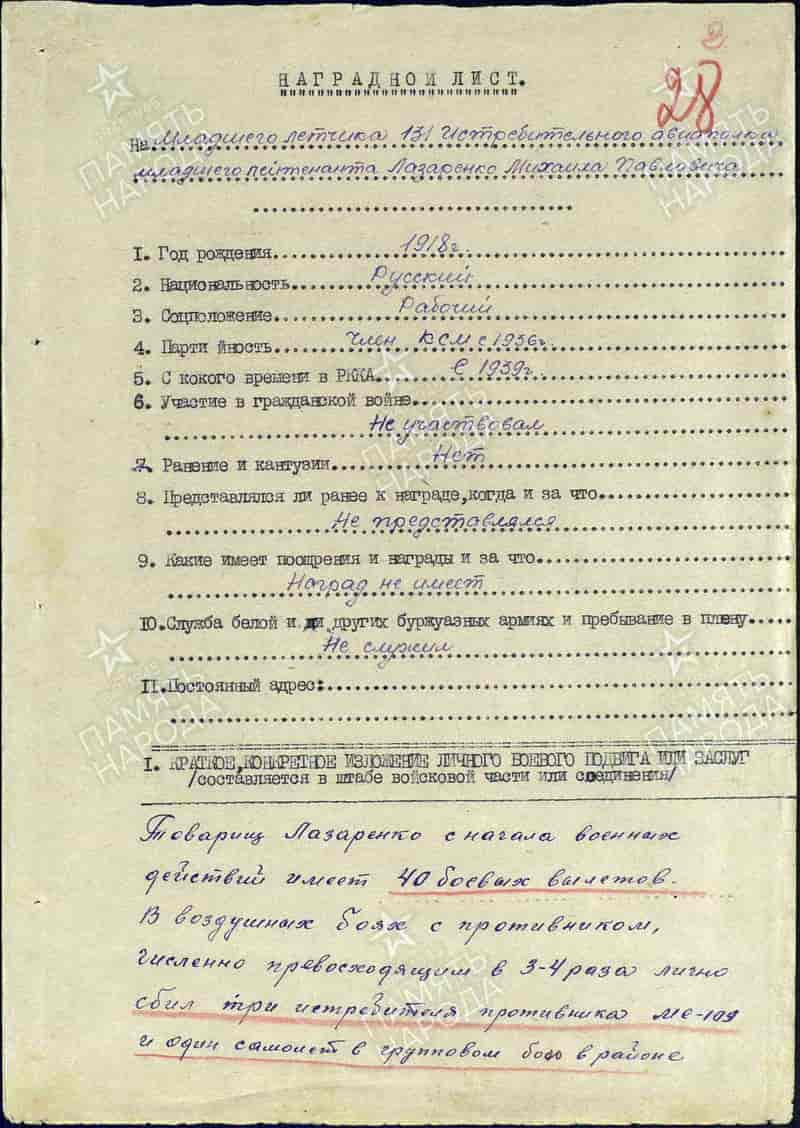 28
НАГРАДНОЙ ЛИСТ.
На Младшего летчика 131 Истребительного авиаполка
младшего лейтенанта Лазаренко Михаила Павловича
1. Год рождения 1918 г.
2. Национальность Русский
3. Соцположение Рабочий
4. Парти йность Член ВСМ с 1936 г.
5. С кокого времени в РККА С 1939 г.
6. Участие в гражданской войне
Не участвовал
7. Ранение и кантузии Нет
8. Представлялся ли ранее к награде, когда и за что
Не представлялся
9. Какие имеет поощрения и награды и за что
Наград не имеет
10. Служба белой и ли других буржуазных армиях и пребывание в плену
Не служил
11. Постоянный адрес:
I. КРАТКОЕ, КОНКРЕТНОЕ ИЗЛОЖЕНИЕ ЛИЧНОГО БОЕВОГО ПОДВИГА ИЛИ ЗАСЛУГ
/составляется в штабе войсковой части или соединения/
Товарищ Лазаренко с начала военных
действий имеет 40 боевых вылетов.
В воздушных боях с противником,
численно превосходящим в 3-4 раза лично
сбил три истребителя противника МЕ-109
и один самолет в групповом бою в районе
ПАМЯТЬ НАРОДА